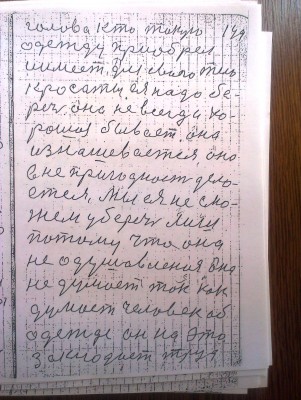 голова кто такую 144
одежду приобрел
и имеет для своего тил
кросаты ея надо бе
речь она не всегда хо
рошая бывает. она
изнашевается оно
в не пригодност дело
ется, мы ея не смо
жем уберечь лиш
потому что она
не одушавления она
не думает так как
думает человек об
одежде он на это
закладает труд